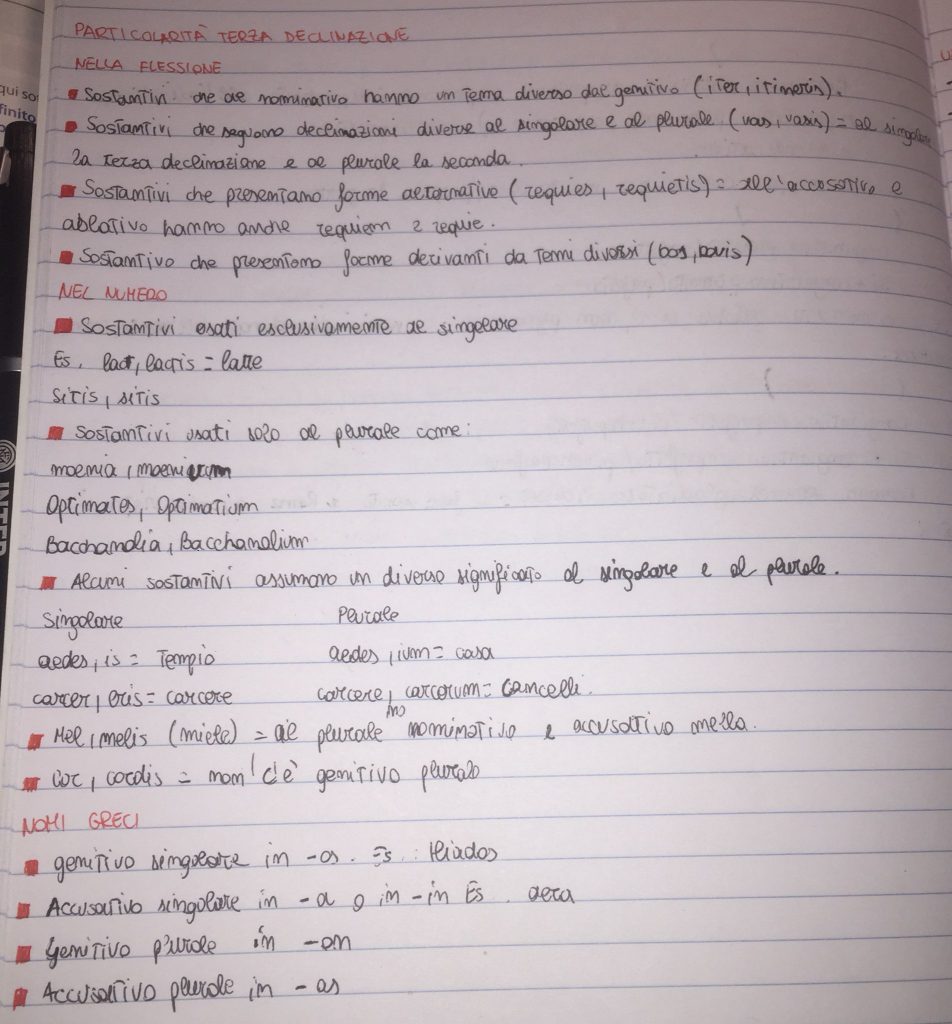 PARTICOLARITÀ TERZA DECLINAZIONE
NELLA FLESSIONE
Sostantivi che al nominativo hanno un tema diverso dal genitivo (iter, itineris).
Sostantivi che seguono declinazioni diverse al singolare e al plurale (vas, vasis) = al singolare
la terza declinazione e al plurale la seconda.
Sostantivi che presentano forme alternative (requies, requietis) = all'accusativo e
ablativo hanno anche requiem e requie.
Sostantivo che presentano forme derivanti da temi diversi (bos, bovis)
NEL NUMERO
Sostantivi usati esclusivamente al singolare
Es. lact, lactis = latte
sitis, sitis
Sostantivi usati solo al plurale come:
moenia, moenium
Optimates, Optimatium
Bacchanalia, Bacchanalium
Alcuni sostantivi assumono un diverso significato al singolare e al plurale.
Singolare Plurale
aedes, is = Tempio aedes, ium = casa
carcer, eris = carcere carcere, carcerum = cancelli.
Mel, melis (miele) = al plurale no nominativo e accusativo mella.
Cor, cordis = non c'è genitivo plurale
NOMI GRECI
genitivo singolare in -os. Es: Iliados
Accusativo singolare in -a o in -in Es. aera
Genitivo plurale in -on
Accusativo plurale in -as
qui so
finito
INTER